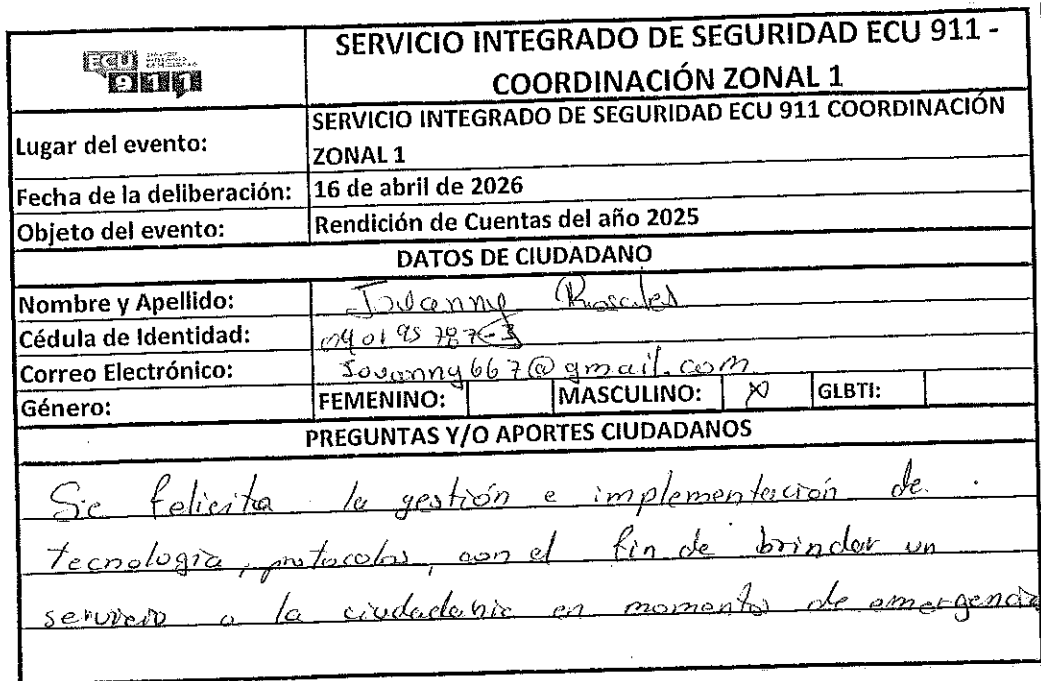 ECU
911
SERVICIO INTEGRADO DE SEGURIDAD ECU 911 -
COORDINACIÓN ZONAL 1
Lugar del evento: SERVICIO INTEGRADO DE SEGURIDAD ECU 911 COORDINACIÓN
ZONAL 1
Fecha de la deliberación: 16 de abril de 2026
Objeto del evento: Rendición de Cuentas del año 2025
DATOS DE CIUDADANO
Nombre y Apellido: Jovanny Rosales
Cédula de Identidad: 040195787-3
Correo Electrónico: Jovanny667@gmail.com
Género: FEMENINO: MASCULINO: X GLBTI:
PREGUNTAS Y/O APORTES CIUDADANOS
Se felicita la gestión e implementación de
tecnología, protocolos, con el fin de brindar un
servicio a la ciudadania en momentos de emergencia